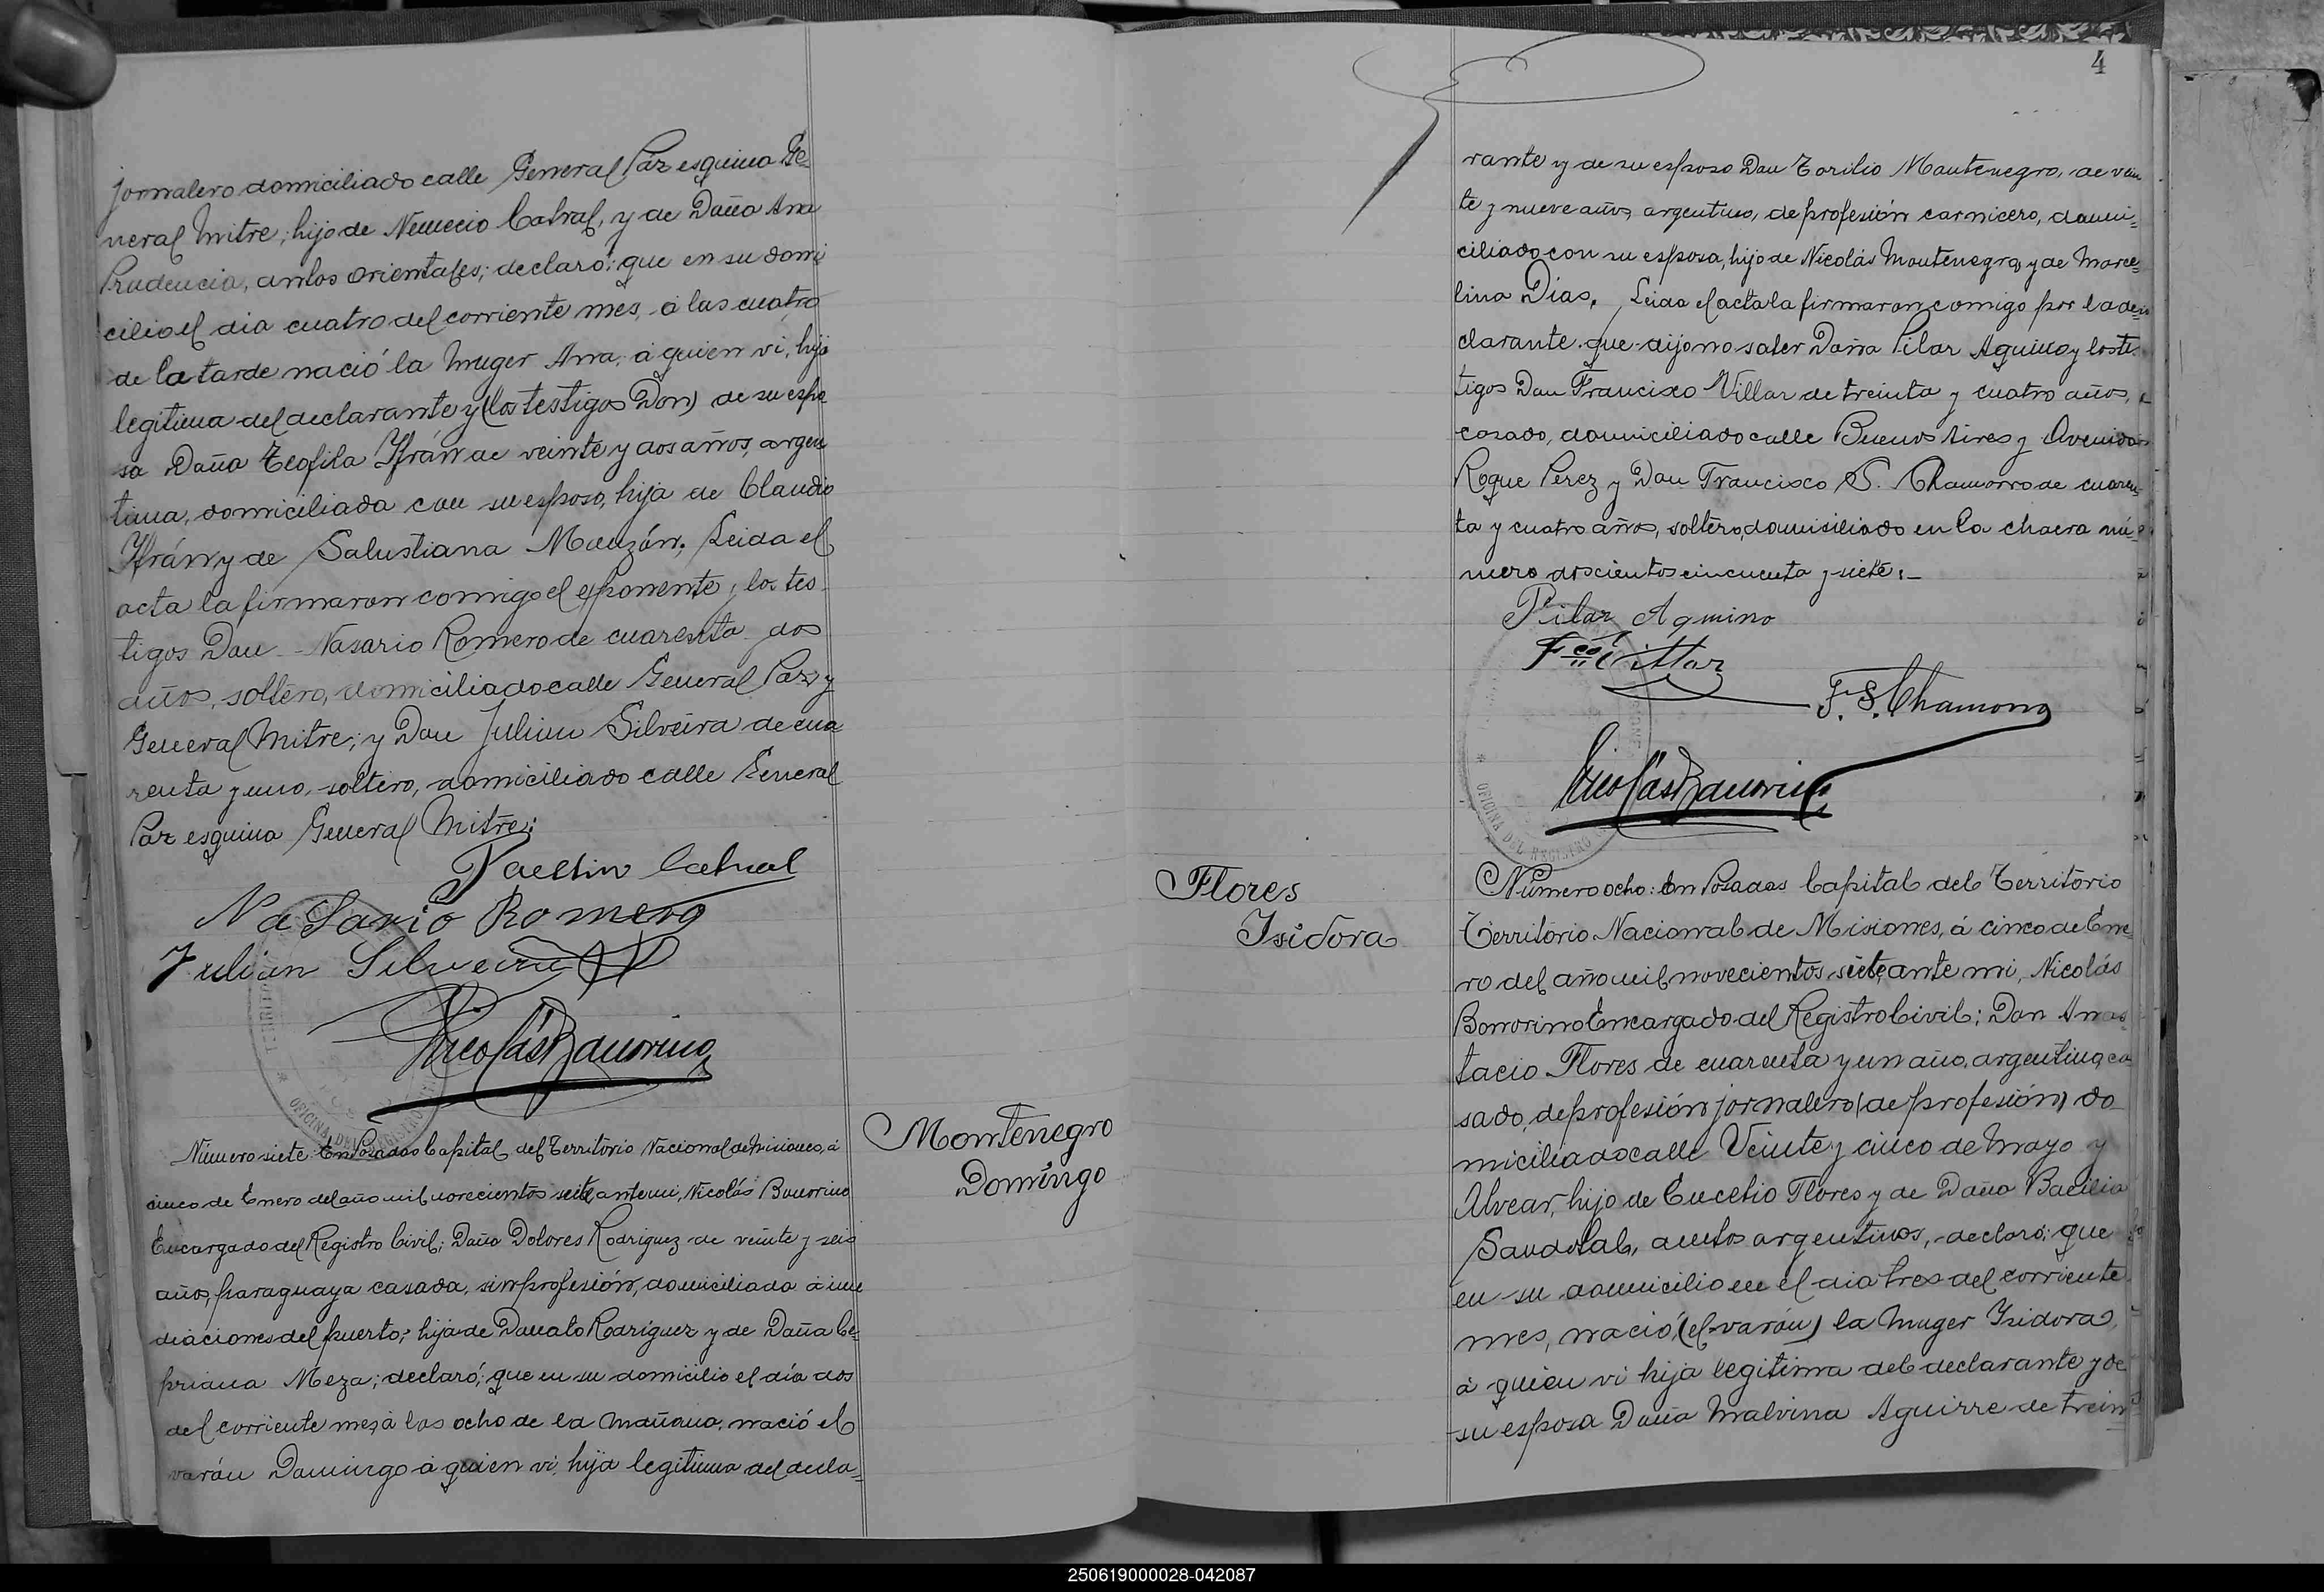 jornalero domiciliado calle General Paz esquina Ge-
neral Mitre; hijo de Nemecio Cabral, y de Doña Ana
Prudencia, ambos orientales; declaró: que en su domi
cilio el dia cuatro del corriente mes, á las cuatro
de la tarde nació la muger Ana, á quien vi, hija
legitima del declarante y (los testigos Don) de su espo
sa Doña Teofila Ifrán de veinte y dos años, argen
tina, domiciliada con su esposo, hija de Claudio
Ifrán y de Salustiana Monzón. Leida el
acta la firmaron comigo el esponente y los tes
tigos Don Nasario Romero de cuarenta dos
años, soltero, domiciliado calle General Paz y
General Mitre; y Don Julian Silveira de cua
renta y uno, soltero, domiciliado calle General
Paz esquina General Mitre:
Cabral
NaSario Romero
Julián Silveira
Nicolás Bonorino
OFICINA DEL REGISTRO
Montenegro
Domingo
Número siete: En Posadas Capital del Territorio Nacional de Misiones, á
cinco de Enero del año mil novecientos siete ante mi, Nicolás Bonorino
Encargado del Registro Civil; Doña Dolores Rodriguez de veinte y seis
años, paraguaya casada, sin profesión, domiciliada á inme
diaciones del puerto; hija de Donato Rodriguez y de Doña Ce-
priana Meza; declaró; que en su domicilio el día dos
del corriente mes, á las ocho de la mañana, nació el
varón Domingo á quien vi, hija legitima del decla-
4
rante y de su esposo Don Torilio Montenegro, de vein
te y nueve años, argentino, de profesión carnicero, domi-
ciliado con su esposa, hijo de Nicolás Montenegro, y de Marce-
lina Dias. Leida el acta la firmaron comigo por la de-
clarante que dijo no saber Doña Pilar Aquino y los te
tigos Don Francisco Villar de treinta y cuatro años,
casado, domiciliado calle Buenos Aires y Avenida
Roque Perez y Don Francisco S. Chamorro de cuaren-
ta y cuatro años, soltero, domisiliado en la chacra nú-
mero doscientos cincuenta y siete:-
Pilar Aquino
Fco Villar
F. S. Chamorro
Nicolás Bonorino
OFICINA DEL REGISTRO
Flores
Isidora
Número ocho: En Posadas Capital del Territorio
Territorio Nacional de Misiones, á cinco de Ene-
ro del año mil novecientos siete, ante mi, Nicolás
Bonorino Encargado del Registro Civil; Don Anas-
tacio Flores de cuarenta y un año, argentino, ca-
sado, de profesión jornalero (de profesión) do
miciliado calle Veinte y cinco de Mayo y
Alvear, hijo de Eucebio Flores y de Doña Bacilia
Sandobal, ambos argentinos, declaró: que
en su domicilio en el dia tres del corriente
mes, nació, (el varón) la muger Isidora,
á quien vi hija legitima del declarante y de
su esposa Doña Malvina Aguirre de trein-
250619000028-042087